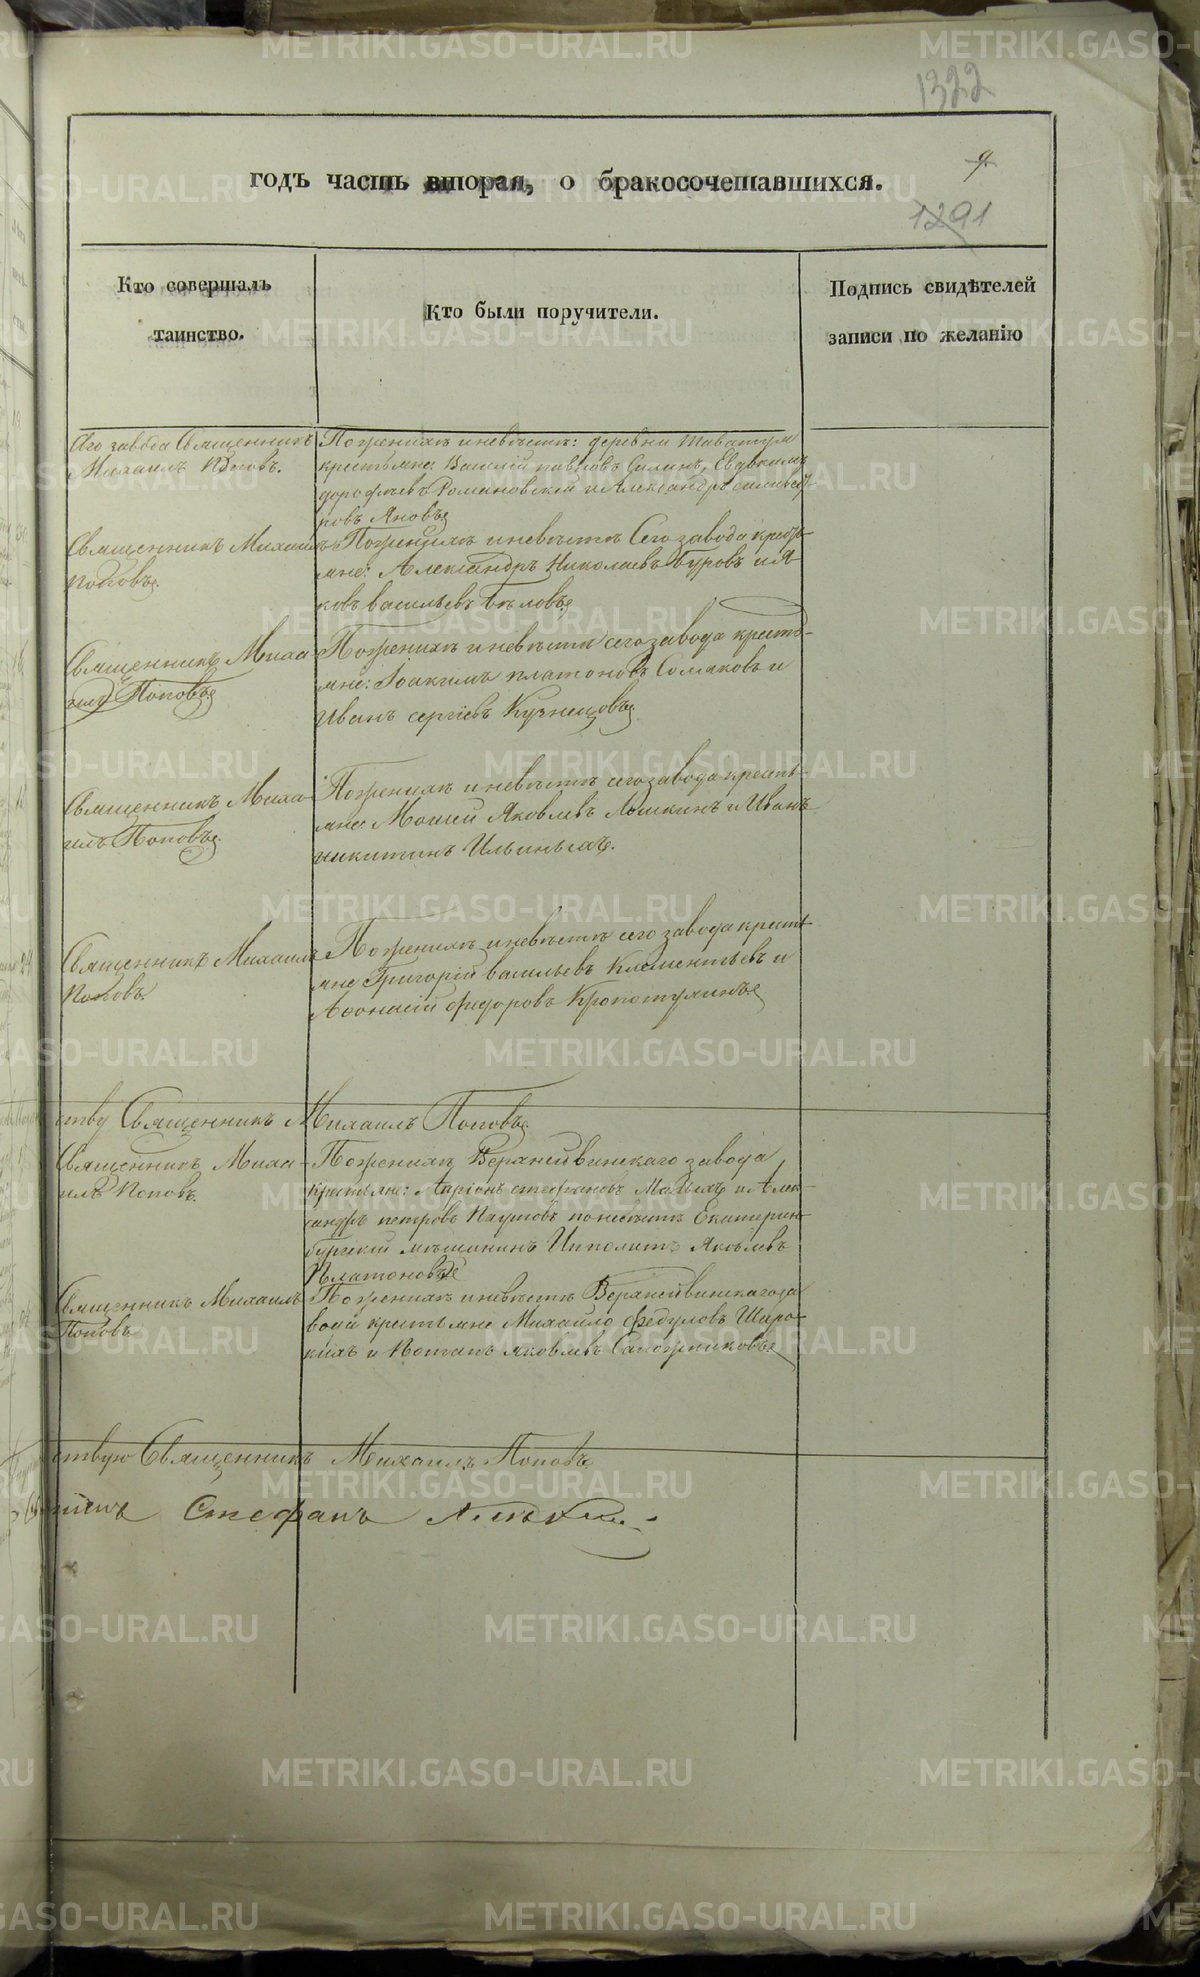 1322
9
годъ часть вторая, о бракосочетавшихся.
1291
Кто совершалъ
таинство.
Кто были поручители.
Подпись свидѣтелей
записи по желанію
Сего завода Священникъ
Михаилъ Поповъ.
По женихѣ и невѣстѣ: деревни Таватуя
крестьяне: Василій Павловъ Силинъ, Евдокимъ
Дорофѣевъ Романовской и Александръ Сильвест-
ровъ Яновъ
Священникъ Михаилъ
Поповъ.
По женихѣ и невѣстѣ Сего завода кресть-
яне: Александръ Николаевъ Буровъ и Я-
ковъ Васильевъ Бѣловъ
Священникъ Миха-
илъ Поповъ
По женихѣ и невѣстѣ сего завода кресть-
яне: Іоакимъ Платоновъ Сомаковъ и
Иванъ Сергѣевъ Кузнецовъ
Священникъ Миха-
илъ Поповъ
По женихѣ и невѣстѣ сего завода кресть-
яне: Моисей Яковлевъ Ломкинъ и Иванъ
Никитинъ Ильиныхъ.
Священникъ Михаилъ
Поповъ
По женихѣ и невѣстѣ сего завода кресть-
яне Григорій Васильевъ Клементьевъ и
Афонасій Федоровъ Кропотухинъ
ству Священникъ Михаилъ Поповъ
Священникъ Миха-
илъ Поповъ
По женихѣ Верхнейвинскаго завода
крестьяне: Ларіонъ Стефановъ и Алек-
сандръ Петровъ по невѣстѣ Екатерин-
бургскій мѣщанинъ Ипполитъ Яковлевъ
Платоновъ
Священникъ Михаилъ
Поповъ
По женихѣ и невѣстѣ Верхнейвинскаго за
вода крестьяне Михайло Федуловъ Широ-
кихъ и Потапъ Яковлевъ Сапожниковъ
ствую Священникъ Михаилъ Поповъ
Стефанъ
METRIKI.GASO-URAL.RU